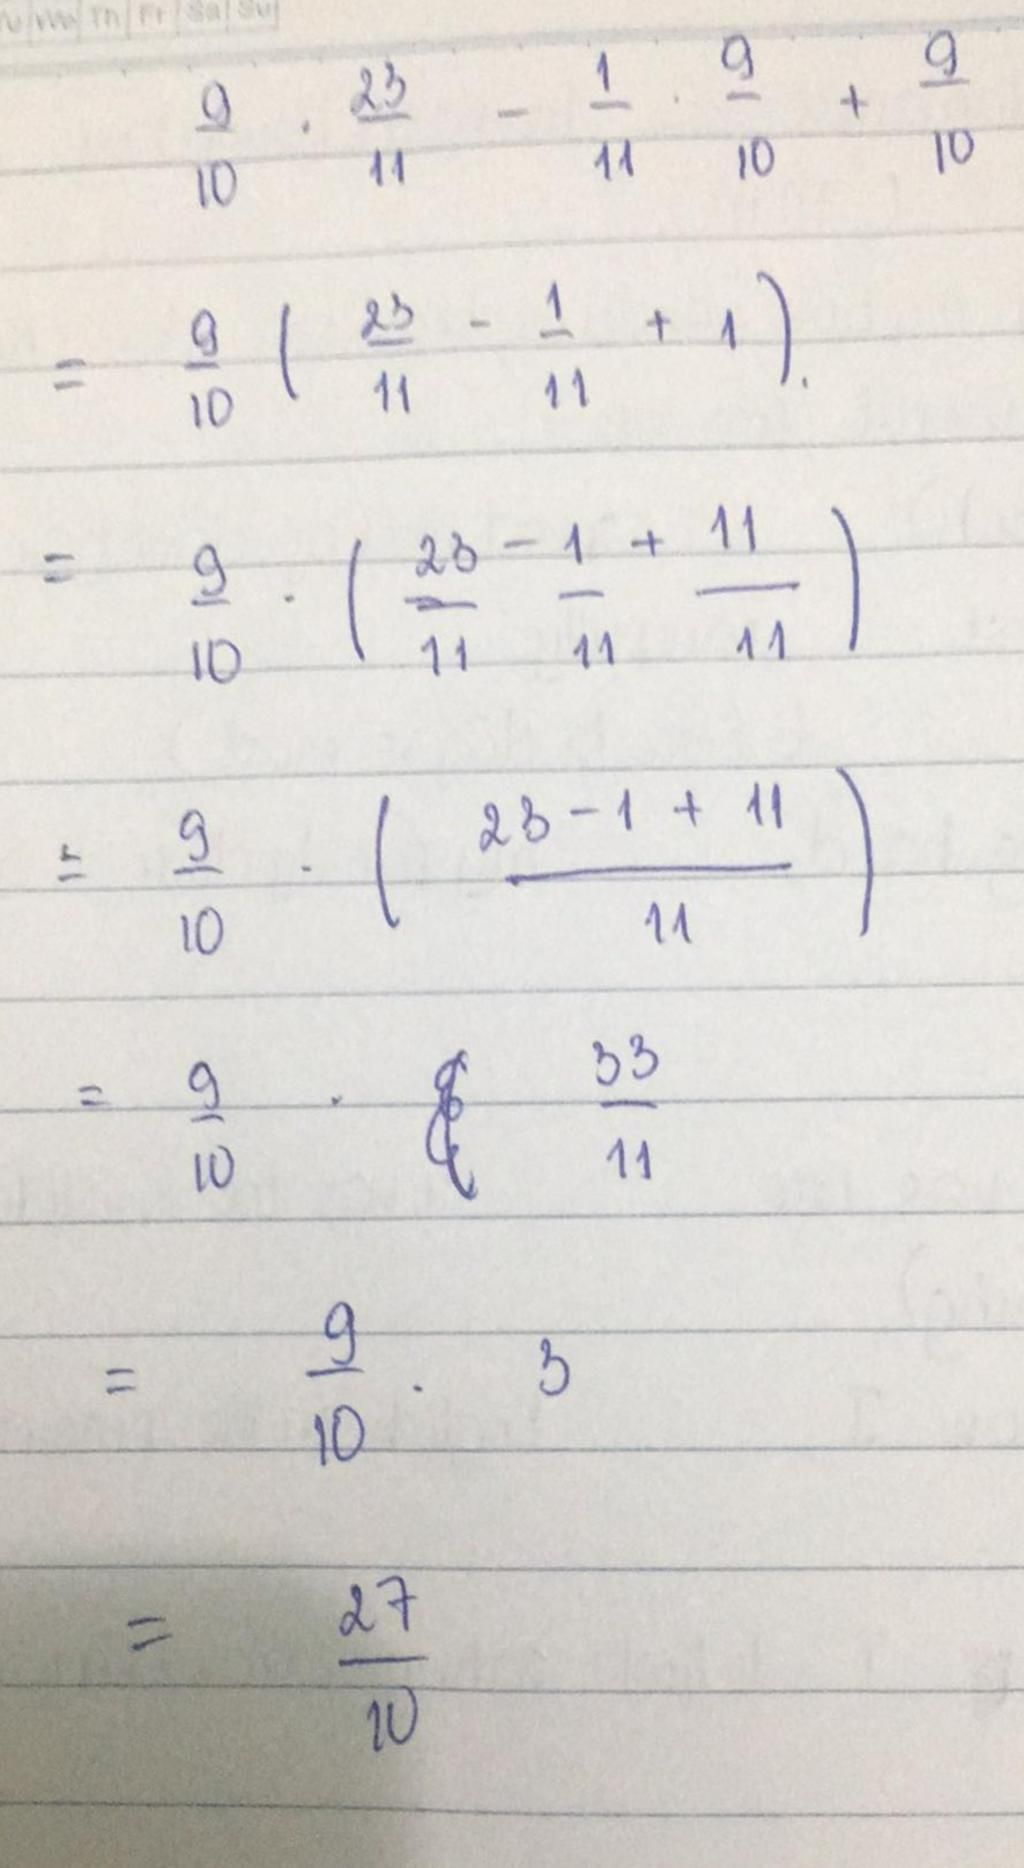 Tu We Th Fr Sa Su
9/10 . 23/11 - 1/11 . 9/10 + 9/10
= 9/10 ( 23/11 - 1/11 + 1 ).
= 9/10 . ( 23/11 - 1/11 + 11/11 )
= 9/10 . ( (23 - 1 + 11)/11 )
= 9/10 . 33/11
= 9/10 . 3
= 27/10